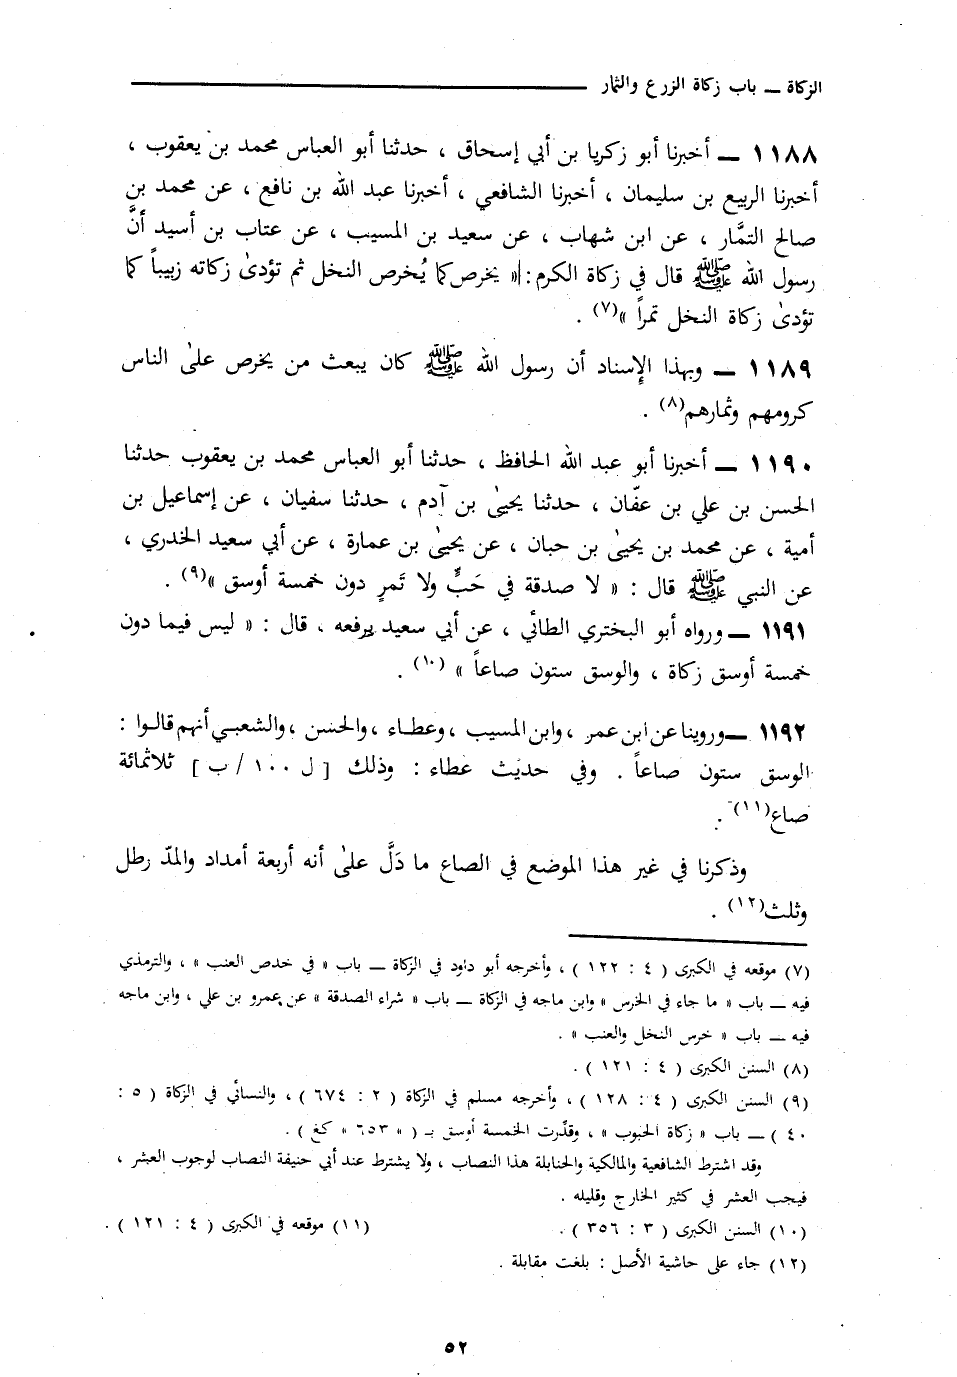 الزكاة ــ باب زكاة الزرع والثمار
١١٨٨ ــ أخبرنا أبو زكريا بن أبي إسحاق ، حدثنا أبو العباس محمد بن يعقوب ،
أخبرنا الربيع بن سليمان ، أخبرنا الشافعي ، أخبرنا عبد الله بن نافع ، عن محمد بن
صالح التمَّار ، عن ابن شهاب ، عن سعيد بن المسيب ، عن عتاب بن أسيد أنَّ
رسول الله ﷺ قال في زكاة الكرم : « يخرص كما يُخرص النخل ثم تؤدىٰ زكاته زبيباً كما
تؤدىٰ زكاة النخل تمراً »(٧) .
١١٨٩ ــ وبهذا الإسناد أن رسول الله ﷺ كان يبعث من يخرص علىٰ الناس
كرومهم وثمارهم(٨) .
١١٩٠ ــ أخبرنا أبو عبد الله الحافظ ، حدثنا أبو العباس محمد بن يعقوب حدثنا
الحسن بن علي بن عفّان ، حدثنا يحيىٰ بن آدم ، حدثنا سفيان ، عن إسماعيل بن
أمية ، عن محمد بن يحيىٰ بن حبان ، عن يحيىٰ بن عمارة ، عن أبي سعيد الخدري ،
عن النبي ﷺ قال : « لا صدقة في حَبٍّ ولا تَمرٍ دون خمسة أوسق »(٩) .
١١٩١ ــ ورواه أبو البختري الطائي ، عن أبي سعيد يرفعه ، قال : « ليس فيما دون
خمسة أوسق زكاة ، والوسق ستون صاعاً » (١٠) .
١١٩٢ ــ وروينا عن ابن عمر ، وابن المسيب ، وعطاء ، والحسن ، والشعبي أنهم قالوا :
الوسق ستون صاعاً . وفي حديث عطاء : وذلك [ ل ١٠٠ / ب ] ثلاثمائة
صاع(١١) .
وذكرنا في غير هذا الموضع في الصاع ما دَلَّ علىٰ أنه أربعة أمداد والمدّ رطل
وثلث(١٢) .
(٧) موقعه في الكبرى ( ٤ : ١٢٢ ) ، وأخرجه أبو داود في الزكاة ــ باب « في خدص العنب » ، والترمذي
فيه ــ باب « ما جاء في الخرس » وابن ماجه في الزكاة ــ باب « شراء الصدقة » عن عمرو بن علي ، وابن ماجه
فيه ــ باب « خرس النخل والعنب » .
(٨) السنن الكبرى ( ٤ : ١٢١ ) .
(٩) السنن الكبرى ( ٤ : ١٢٨ ) ، وأخرجه مسلم في الزكاة ( ٢ : ٦٧٤ ) ، والنسائي في الزكاة ( ٥ :
٤٠ ) ــ باب « زكاة الحبوب » ، وقدّرت الخمسة أوسق بـ ( « ٦٥٣ » كغ ) .
وقد اشترط الشافعية والمالكية والحنابلة هذا النصاب ، ولا يشترط عند أبي حنيفة النصاب لوجوب العشر ،
فيجب العشر في كثير الخارج وقليله .
(١٠) السنن الكبرى ( ٣ : ٣٥٦ ) . (١١) موقعه في الكبرى ( ٤ : ١٢١ ) .
(١٢) جاء على حاشية الأصل : بلغت مقابلة .
٥٢